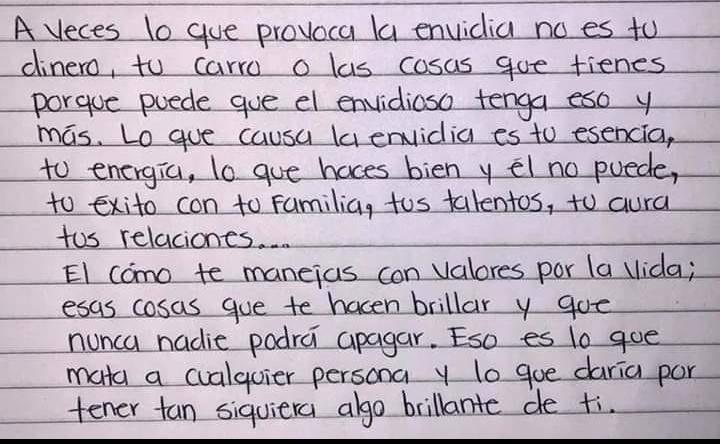 A veces lo que provoca la envidia no es tu
dinero, tu carro o las cosas que tienes
porque puede que el envidioso tenga eso y
más. Lo que causa la envidia es tu esencia,
tu energía, lo que haces bien y él no puede,
tu éxito con tu familia, tus talentos, tu aura
tus relaciones...
El cómo te manejas con valores por la vida;
esas cosas que te hacen brillar y que
nunca nadie podrá apagar. Eso es lo que
mata a cualquier persona y lo que daría por
tener tan siquiera algo brillante de ti.